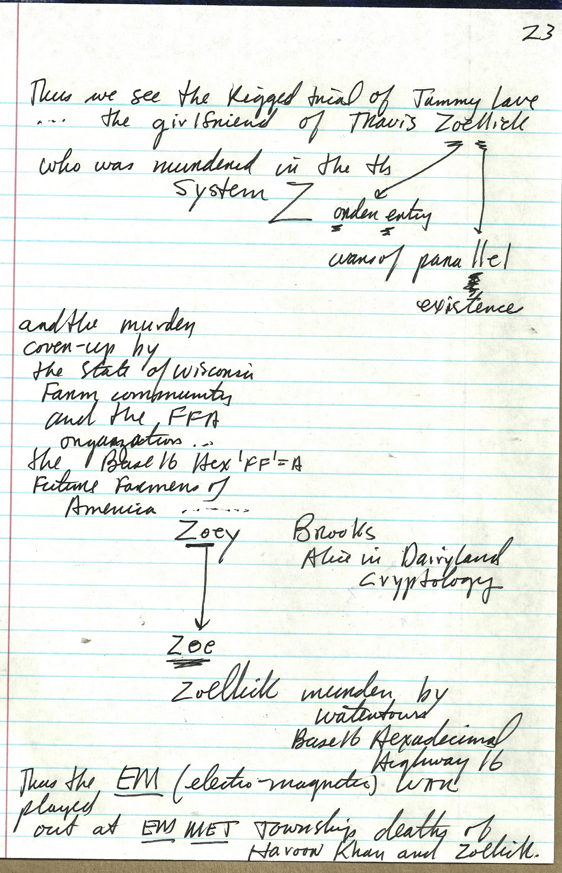 23
Thus we see the Rigged trial of Tammy Lave
... the girlfriend of Travis Zoellick
who was murdered in the th
System Z
order entry
wars of parallel
existence
and the murder
cover-up by
the State of Wisconsin
Farm community
and the FFA
organization ...
the Base 16 Hex 'FF' = A
Future Farmers of
America ------
Zoey Brooks
Alice in Dairyland
Cryptology
Zoe
Zoellick murder by
Watertown
Base 16 Hexadecimal
Highway 16
Thus the EM (electro-magnetic) WAR
played
out at EM MET Township deaths of
Haroon Khan and Zoellick.